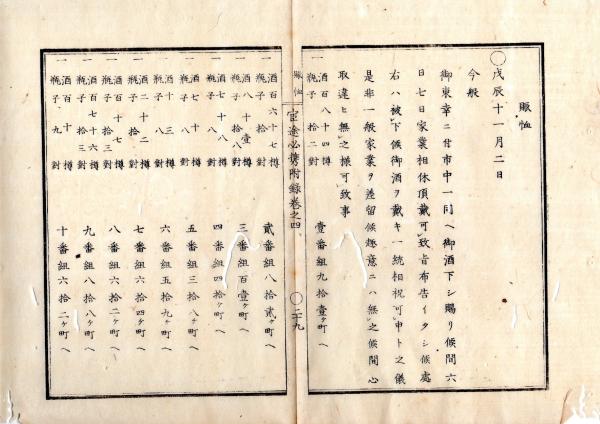 賑恤
○戊辰十一月二日
今般
御東幸ニ付市中一同ヘ御酒下シ賜リ候間六
日七日家業相休頂戴可致旨布告イタシ候處
右ハ被下候御酒ヲ戴キ一統相祝可申トノ儀
是非一般家業ヲ差留候趣意ニハ無之候間心
取違ヒ無之樣可致事
一 酒百八十四樽 瓶子 拾二對 壹番組九拾壹ヶ町ヘ
賑恤 官途必携附録卷之四 ○二十九
一 酒百六十七樽 瓶子 拾 對 貳番組八拾貳ヶ町ヘ
一 酒八十壹樽 瓶子 拾八對 三番組百壹ヶ町ヘ
一 酒七十樽 瓶子 八對 四番組四拾ヶ町ヘ
一 酒十三樽 瓶子 八對 五番組三拾八ヶ町ヘ
一 酒二十二樽 瓶子 十對 六番組五拾九ヶ町ヘ
一 酒百七十樽 瓶子 七對 七番組六拾四ヶ町ヘ
一 酒百十樽 瓶子 拾三對 八番組六拾二ヶ町ヘ
一 酒百七十六樽 瓶子 拾三對 九番組八拾八ヶ町ヘ
一 酒百十樽 瓶子 九對 十番組六拾二ヶ町ヘ